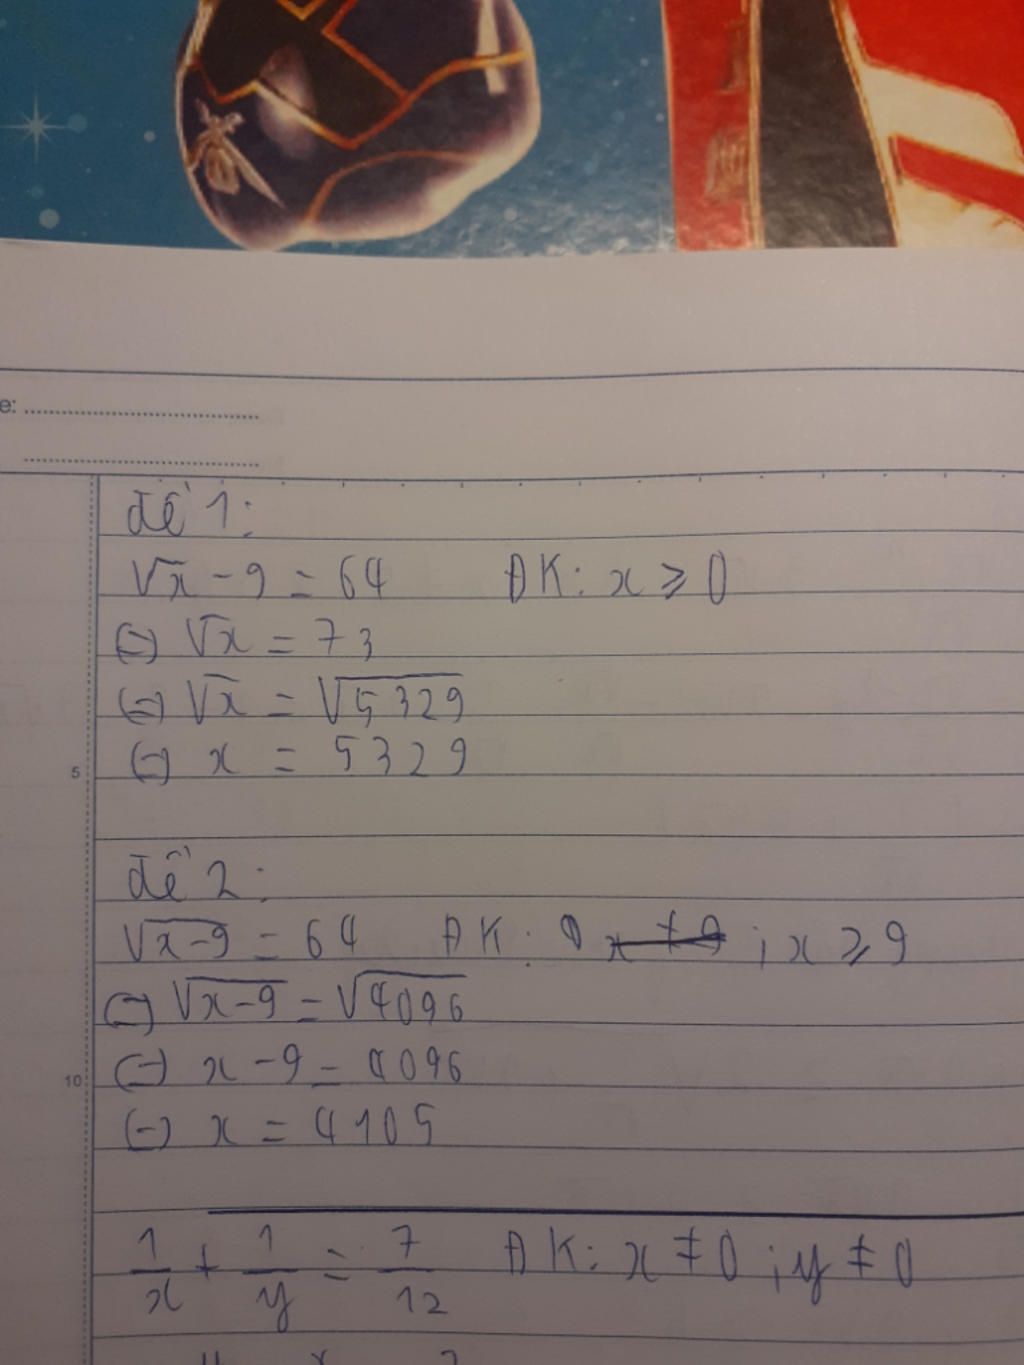 e: ....................
....................
đề 1:
√x - 9 = 64 ĐK: x ⩾ 0
(=) √x = 73
(=) √x = √5329
5 (=) x = 5329
đề 2:
√(x-9) = 64 ĐK: ; x ⩾ 9
(=) √(x-9) = √4096
10 (=) x - 9 = 4096
(=) x = 4105
1/x + 1/y = 7/12 ĐK: x ≠ 0 ; y ≠ 0